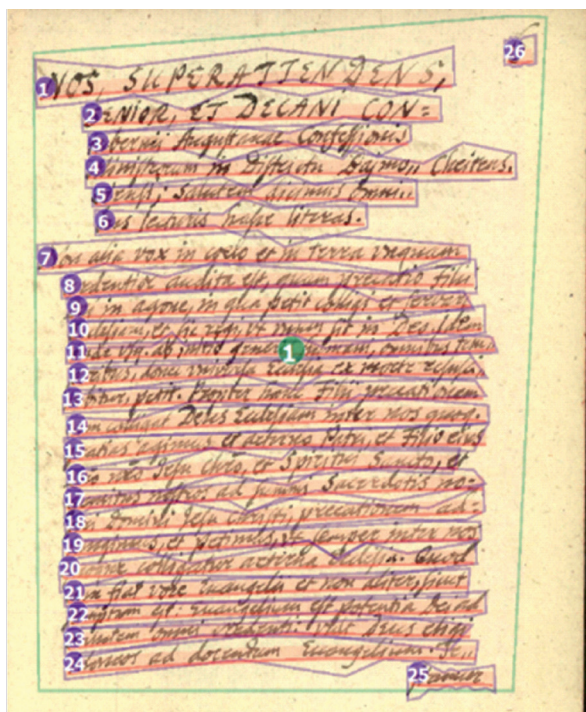 NOS, SUPERATTENDENS,
SENIOR, ET DECANI CON=
Augustanae Confessionis
Ministrorum in
Salutem dicimus Omni,,
lecturis hasce literas.
Non alia vox in coelo et in terra unquam
ardentior audita est, quam precatio Filii
Dei in agone, in qua petit colligi et
et ut unum sit in Deo. Idem
inde usq. ab initio generis humani, omnibus tem,,
poribus, donec universa Ecclesia ex morte
petit. Propter hanc Filii precationem
colliget Deus Ecclesiam inter nos quoq.
Gratias agimus et aeterno Patri, et Filio eius
Dno nro Jesu Chro, et Spiritui Sancto, et
gemitus nostros ad Sacerdotis no=
stri Domini Jesu Christi, precationem ad=
jungimus, et petimus, ut semper inter nos
colligatur aeterna Ecclesia. Quod
fiat voce Evangelii et non aliter, sicut
scriptum est: Evangelium est potentia Dei ad
salutem omni credenti. Vult Deus eligi
ad docendum Evangelium.